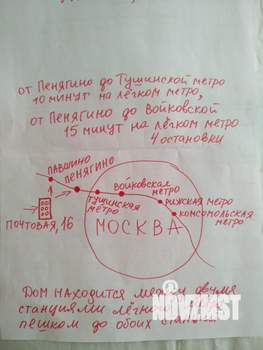 от Пенягино до Тушинской метро
10 минут на лёгком метро,
от Пенягино до Войковской
15 минут на лёгком метро
4 остановки
Павшино
Пенягино
Войковская
метро
Тушинская
метро
Рижская метро
Комсомольская
метро
Почтовая, 16
МОСКВА
Дом находится между двумя
станциями
пешком до обоих